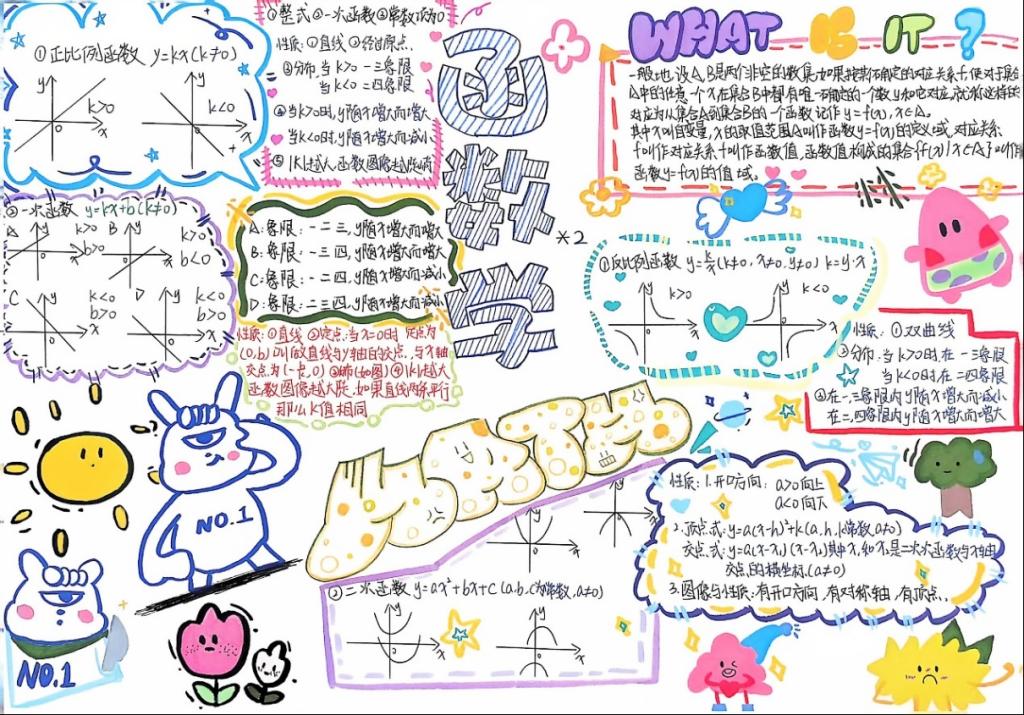 ①正比例函数 y=kx(k≠0)
y
k>0
x
y
k<0
x
①整式②一次函数③常数项为0
性质:①直线②经过原点.
③分布.当k>0 一三象限
当k<0 二四象限
④当k>0时,y随x增大而增大
当k<0时,y随x增大而减小
⑤|k|越大,函数图像越陡峭
函
数
学
*2
WHAT IS IT ?
一般地,设A,B是两个非空的数集,如果按某个确定的对应关系f,使对于集合
A中的任意一个x,在集合B中都有唯一确定的一个数y和它对应,就称这样的
对应为从集合A到集合B的一个函数,记作y=f(x),x∈A.
其中x叫自变量,x的取值范围A叫作函数y=f(x)的定义域,对应关系
f叫作对应关系f叫作函数值,函数值构成的集合{f(x)|x∈A}叫作
函数y=f(x)的值域.
一次函数 y=kx+b(k≠0)
A
y
k>0
b>0
x
B
y
k>0
b<0
x
C
y
k<0
b>0
x
D
y
k<0
b>0
x
A:象限:一二三,y随x增大而增大
B:象限:一三四,y随x增大而增大
C:象限:一二四,y随x增大而减小
D:象限:二三四,y随x增大而减小
性质:①直线②定点:当x=0时
(0,b)叫做直线与y轴的交点,与x轴
④|k|越大
函数图像越大陡.如果直线两条平行
那么k值相同
①反比例函数 y=k/x(k≠0,x≠0,y≠0) k=y·x
y
k>0
x
y
k<0
x
性质:①双曲线
②分布.当k>0时在一三象限
当k<0时在二四象限
③在一,三象限内y随x增大而减小
在二,四象限内y随x增大而增大
NO.1
NO.1
MATH
y
x
y
x
②二次函数 y=ax²+bx+c(a,b,c为常数,a≠0)
y
x
y
x
性质:1.开口方向: a>0向上
a<0向下
2.顶点式:y=a(x-h)²+k(a,h,k常数,a≠0)
交点式:y=a(x-x₁)(x-x₂)其中x₁和x₂是二次函数与x轴
交点的横坐标.(a≠0)
3.图像与性质:有开口方向,有对称轴,有顶点.